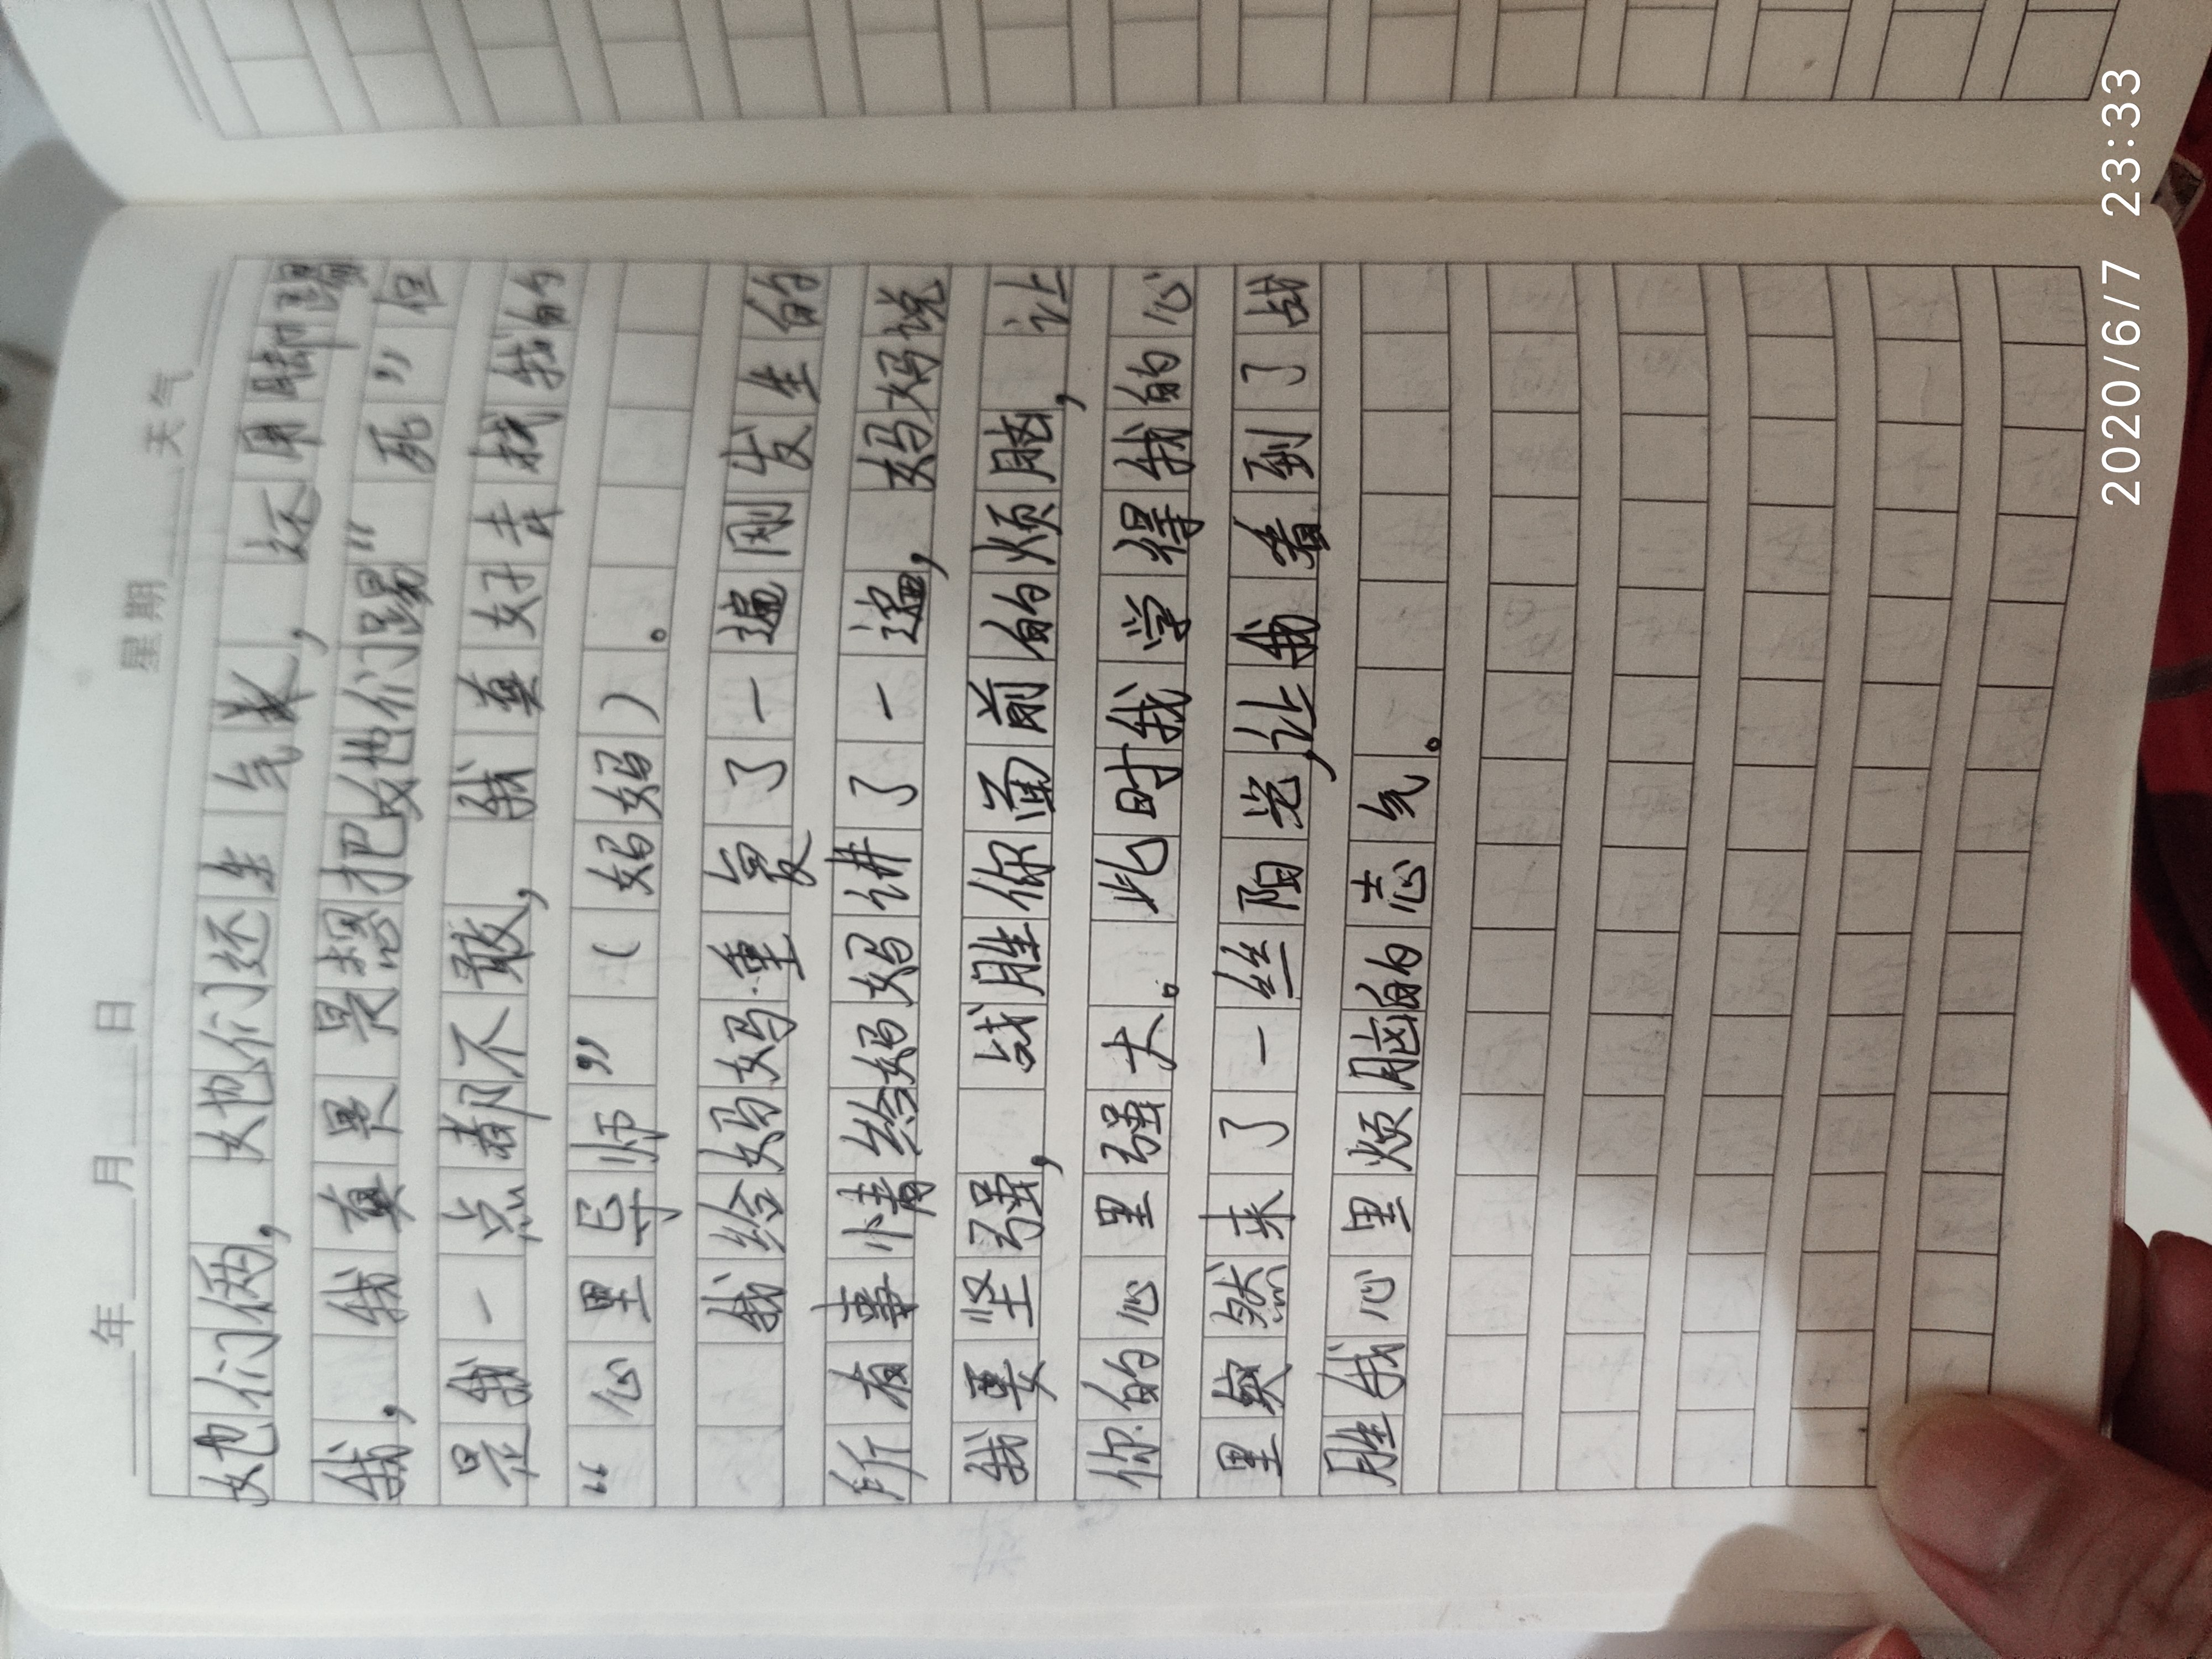 年 月 日 星期 天气
她们俩，她们还生气来，还用脚踢
我，我真是想把她们踢“死”但
是我一点都不敢，我真好去找我的
“心里导师”（妈妈）。
我给妈妈重复了一遍刚发生的
所有事情给妈妈讲了一遍，妈妈说
我要坚强，战胜你面前的烦脑，让
你的心里强大。此时我学得我的心
里突然来了一丝阳光，让我看到了战
胜我心里烦脑的志气。
2020/6/7 23:33